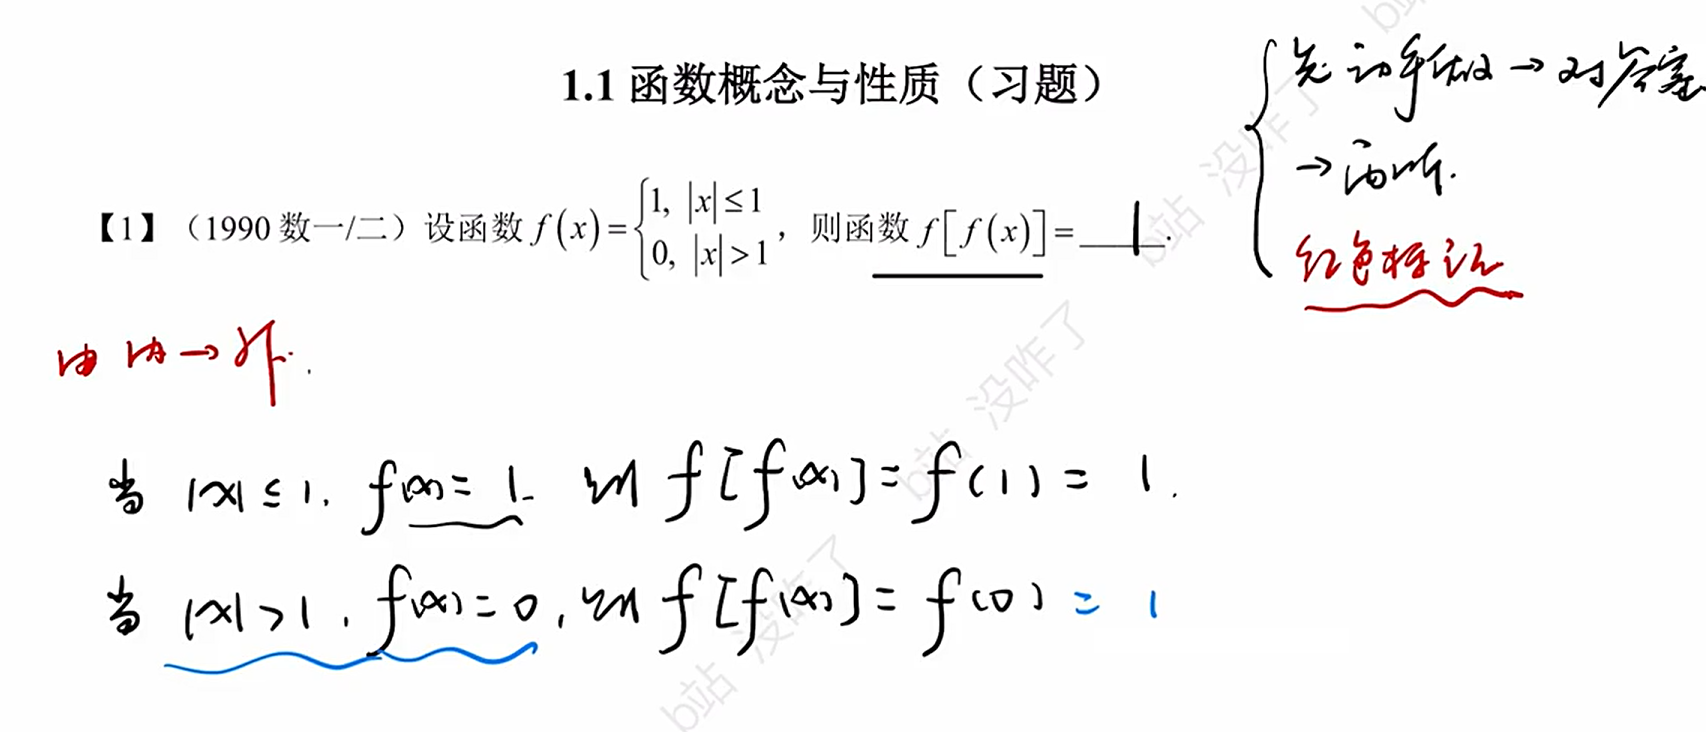 1.1 函数概念与性质（习题）
先动手做→对答案
→再听.
红色标记
【1】（1990 数一/二）设函数 f(x)={1, |x|≤1
0, |x|>1 ，则函数 f[f(x)]=1.
由内→外.
当 |x|≤1, f(x)=1. 则 f[f(x)]=f(1)=1.
当 |x|>1, f(x)=0, 则 f[f(x)]=f(0)=1
b站 没咋了
b站 没咋了
b站 没咋了
b站